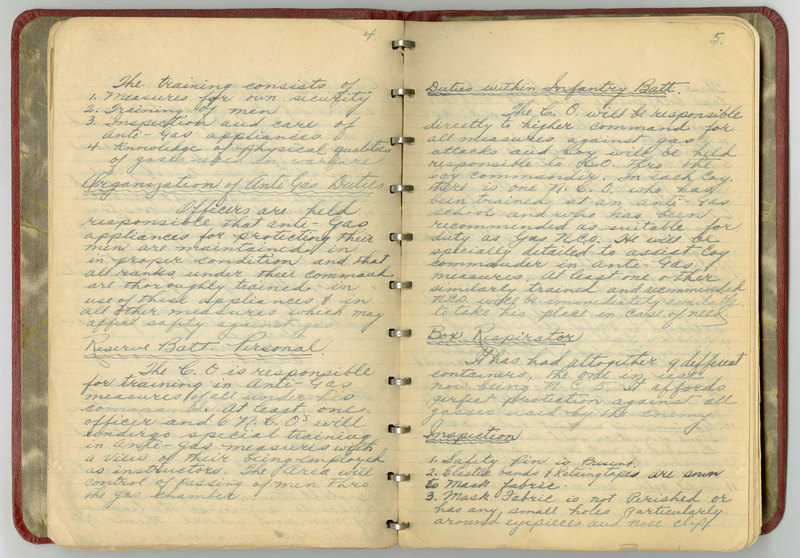 4.
The training consists of
1. Measures for own security
2. Training of men
3. Inspection and care of
Anti-Gas appliances
4. Knowledge of physical qualities
of gases used in warfare
Organization of Anti Gas Duties
Officers are held
responsible that anti-gas
appliances for protecting their
men are maintained in
in proper condition and that
all ranks under their command
are thoroughly trained in
use of these appliances & in
all other measures which may
affect safety against gas
Reserve Batt Personal
The C.O is responsible
for training in Anti-Gas
measures of all under his
command. At least one
officer and 6 N.C.Os will
undergo special training
in Anti-Gas measures with
a view of their being employed
as instructors. The area will
control of passing of men thro
the gas chamber
5.
Duties within Infantry Batt.
The C.O. will be responsible
directly to higher command for
all measures against gas
attacks and Coy will be held
responsible to C.O. thro the
coy commander. In each Coy.
there is one N.C.O. who has
been trained at an anti-gas
school and who has been
recommended as suitable for
duty as Gas NCO. He will be
specially detailed to assist Coy
commander in Anti-Gas
measures. At least one other
similarly trained and recommended
NCO will be immediately available
to take his place in case of need
Box Respirator
It has had altogether 9 different
containers, the one in use
now being N.C.5. It affords
perfect protection against all
gasses used by the enemy
Inspection
1. Safety Pin is Present.
2. Elastic bands & Retaining tapes are sown
to Mask Fabric.
3. Mask Fabric is not Perished or
has any small holes particularly
around eyepieces and nose cliff